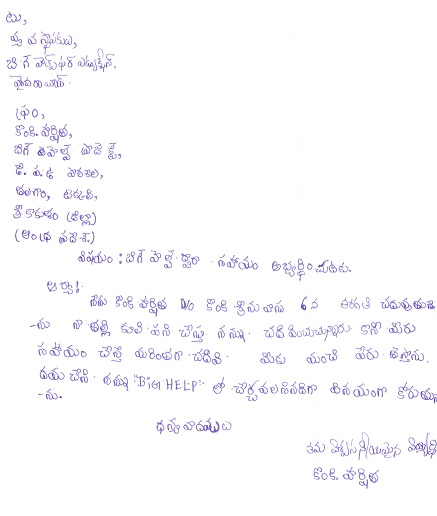 టు,
వ్యవస్థాపకులు,
బిగ్ హెల్ప్ ఫర్ ఎడ్యుకేషన్,
హైదరాబాద్.
ఫ్రం,
కొంకి. హర్షిత,
బిగ్ హెల్ప్
జి. ప. ఉ పాఠశాల,
శ్రీకాకుళం (జిల్లా)
(ఆంధ్రప్రదేశ్.)
విషయం : బిగ్ హెల్ప్ ద్వారా సహాయం అభ్యర్థించుటకు.
ఆర్యా!
నేను కొంకి హర్షిత D/o కొంకి శ్రీనువాస 6వ తరగతి చదువుతున్నా
-ను నా తల్లి కూలి పని చేస్తూ నన్ను చదివించుచున్నారు. కానీ మీరు
సహాయం చేస్తే మరింతగా చదివి మీకు మంచి పేరు తెస్తాను.
దయచేసి నన్ను "BIG HELP" లో చేర్చవలసినదిగా వినయంగా కోరుతున్నా
-ను.
ధన్యవాదములు
తమ విశ్వసనీయమైన విద్యార్థి
కొంకి. హర్షిత